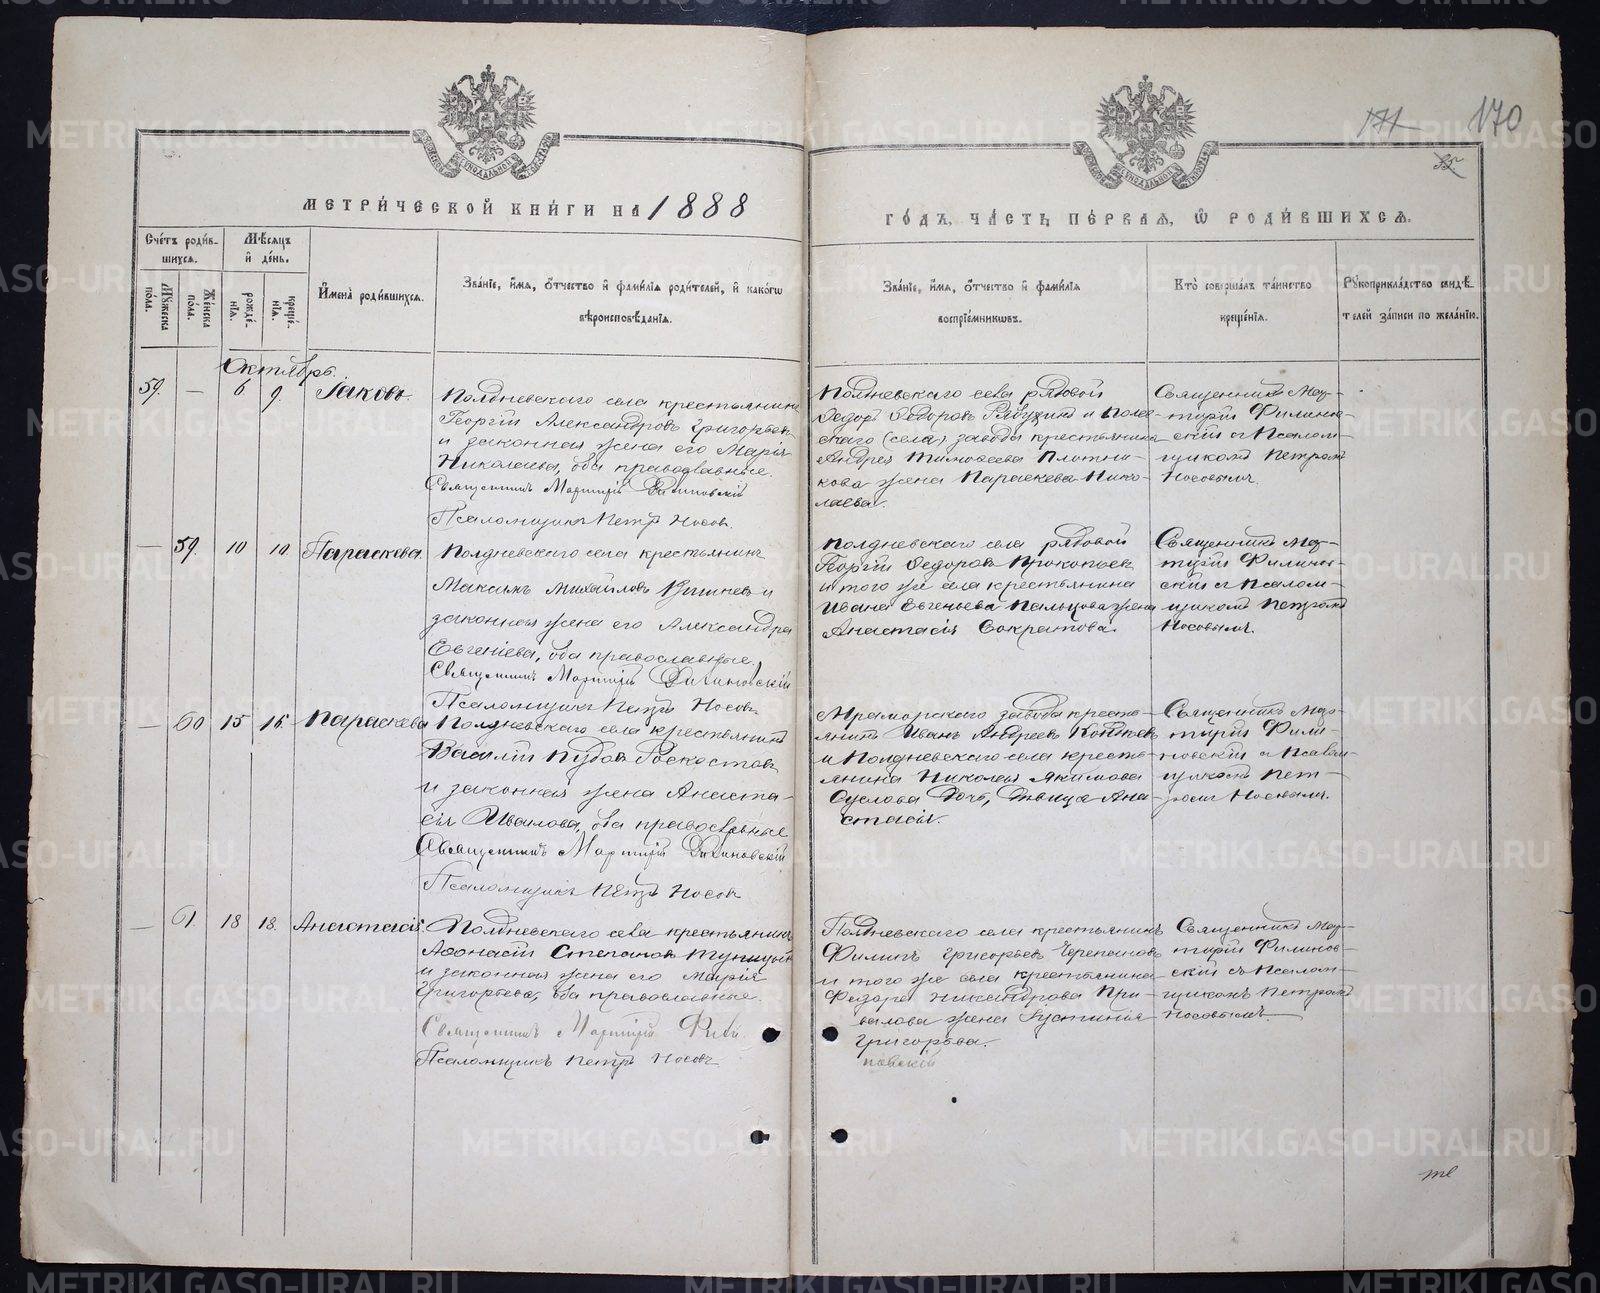 171 170
МЕТРИ́ЧЕСКОЙ КНИ́ГИ НА 1888
ГО́ДЪ, ЧА́СТЬ ПЕ́РВАЯ, Ѡ РОДИ́ВШИХСЯ.
Сче́тъ роди́в-
шихся.
Мѣ́сяцъ
и҆ де́нь.
Мꙋ́жеска
по́ла.
Же́нска
по́ла.
рожде́-
нїя.
креще́-
нїя.
И҆мена̀ роди́вшихся.
Зва́нїе, и҆́мя, ѻ҆́тчество и҆ фами́лїя роди́телей, и҆ како́гѡ
вѣроисповѣ́данїя.
Зва́нїе, и҆́мя, ѻ҆́тчество и҆ фами́лїя
воспрїе́мникѡвъ.
Кто̀ соверша́лъ та́инство
креще́нїя.
Рꙋкоприкла́дство свидѣ́-
телей за́писи по жела́нїю.
Октябрь.
59. — 6 9. Іаковъ.
Полдневскаго села крестьянинъ
Георгій Александровъ Григорьевъ
и законная жена его Марія
Николаева, оба православные.
Священникъ Мартирій Филиновскій
Псаломщикъ Петръ Носовъ.
Полдневскаго села рядовой
Федоръ Федоровъ и Поле-
скаго (села) завода крестьянина
Андрея Тимофеева Плотни-
кова жена Параскева Нико-
лаева.
Священникъ Мар-
тирій Филинов-
скій съ Псалом-
щикомъ Петромъ
Носовымъ.
— 59. 10 10 Параскева
Полдневскаго села крестьянинъ
Максимъ Михайловъ и
законная жена его Александра
Евгеніева, оба православные.
Священникъ Мартирій Филиновскій
Псаломщикъ Петръ Носовъ
Полдневскаго села рядовой
Георгій Федоровъ Прокопьевъ
и того же села крестьянина
Ивана Евгеньева Пальцова жена
Анастасія Сократова.
Священникъ Мар-
тирій Филинов-
скій съ Псалом-
щикомъ Петромъ
Носовымъ.
— 60 15 16. Параскева
Полдневскаго села крестьянинъ
Василій Пудовъ
и законная жена Анаста-
сія Иванова, оба православные
Священникъ Мартирій Филиновскій
Псаломщикъ Петръ Носовъ
Мраморскаго завода кресть-
янинъ Иванъ Андреевъ
и Полдневскаго села кресть-
янина Николая Акимова
Суслова дочь, девица Ана-
стасія.
Священникъ Мар-
тирій Фили-
новскій съ Псалом-
щикомъ Пет-
ромъ Носовымъ.
— 61. 18 18. Анастасія
Полдневскаго села крестьянинъ
Афонасій Степановъ
и законная жена его Марія
Григорьева, оба православные.
Священникъ Мартирій Фили-
Псаломщикъ Петръ Носовъ
Полдневскаго села крестьянинъ
Филипъ Григорьевъ Черепановъ
и того же села крестьянина
Федора Никандрова При-
валова жена Устинія
Григорьева.
новскій
Священникъ Мар-
тирій Филинов-
скій съ Псалом-
щикомъ Петромъ
Носовымъ.